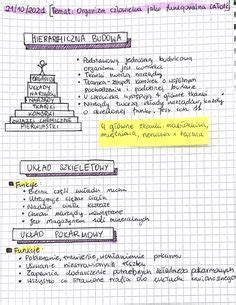 21/10/2021 Temat: Organizm człowieka jako funkcjonalna całość
HIERARCHICZNA BUDOWA
• Podstawową jednostką budulcową
organizmu jest komórka
• Tkanki tworzą narządy
• Tkanka - zespół komórek o wspólnym
pochodzeniu i podobnej budowie
• U człowieka występują 4 główne tkanki
• Narządy tworzą układy narządów, każdy
o określonej funkcji
ORGANIZM
UKŁADY
NARZĄDÓW
NARZĄDY
TKANKI
KOMÓRKI
ZWIĄZKI CHEMICZNE
PIERWIASTKI
4 główne tkanki: nabłonkowa,
mięśniowa, nerwowa i łączna
UKŁAD SZKIELETOWY
Funkcje
• Bierna część układu ruchu
• Utrzymuje ciężar ciała
• Nadaje ciału kształt
• Chroni narządy wewnętrzne
• Jest magazynem soli mineralnych
UKŁAD POKARMOWY
Funkcje:
• Pobieranie, trawienie, wchłanianie pokarmu
• Usuwanie niestrawionych resztek
• Zapewnia dostarczenie potrzebnych składników pokarmowych
• Wszystko co strawione trafia do